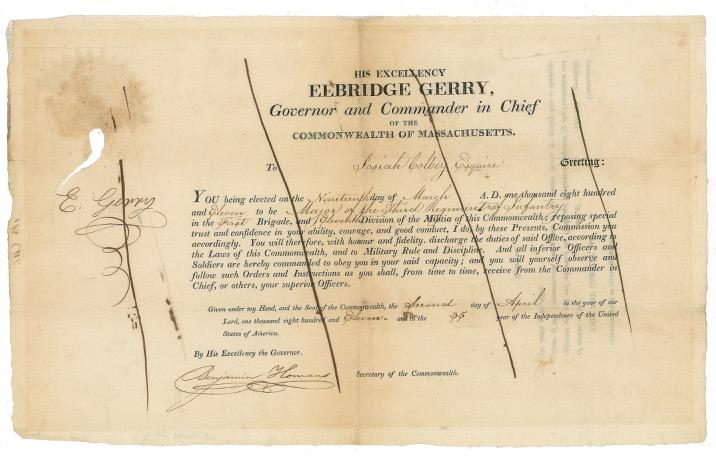 HIS EXCELLENCY
ELBRIDGE GERRY,
Governor and Commander in Chief
OF THE
COMMONWEALTH OF MASSACHUSETTS.
To Josiah Colbey Esquire Greeting:
E. Gerry
YOU being elected on the Nineteenth day of March A. D. one thousand eight hundred
and Eleven to be Major of the Third Regiment of Infantry
in the First Brigade, and Eleventh Division of the Militia of this Commonwealth; reposing special
trust and confidence in your ability, courage, and good conduct, I do, by these Presents, Commission you
accordingly. You will therefore, with honour and fidelity, discharge the duties of said Office, according to
the Laws of this Commonwealth, and to Military Rule and Discipline. And all inferior Officers and
Soldiers are hereby commanded to obey you in your said capacity; and you will yourself observe and
follow such Orders and Instructions as you shall, from time to time, receive from the Commander in
Chief, or others, your superior Officers.
Given under my Hand, and the Seal of the Commonwealth, the Second day of April in the year of our
Lord, one thousand eight hundred and Eleven. and in the 35 year of the Independence of the United
States of America.
By His Excellency the Governor.
Benjamin Homans Secretary of the Commonwealth.